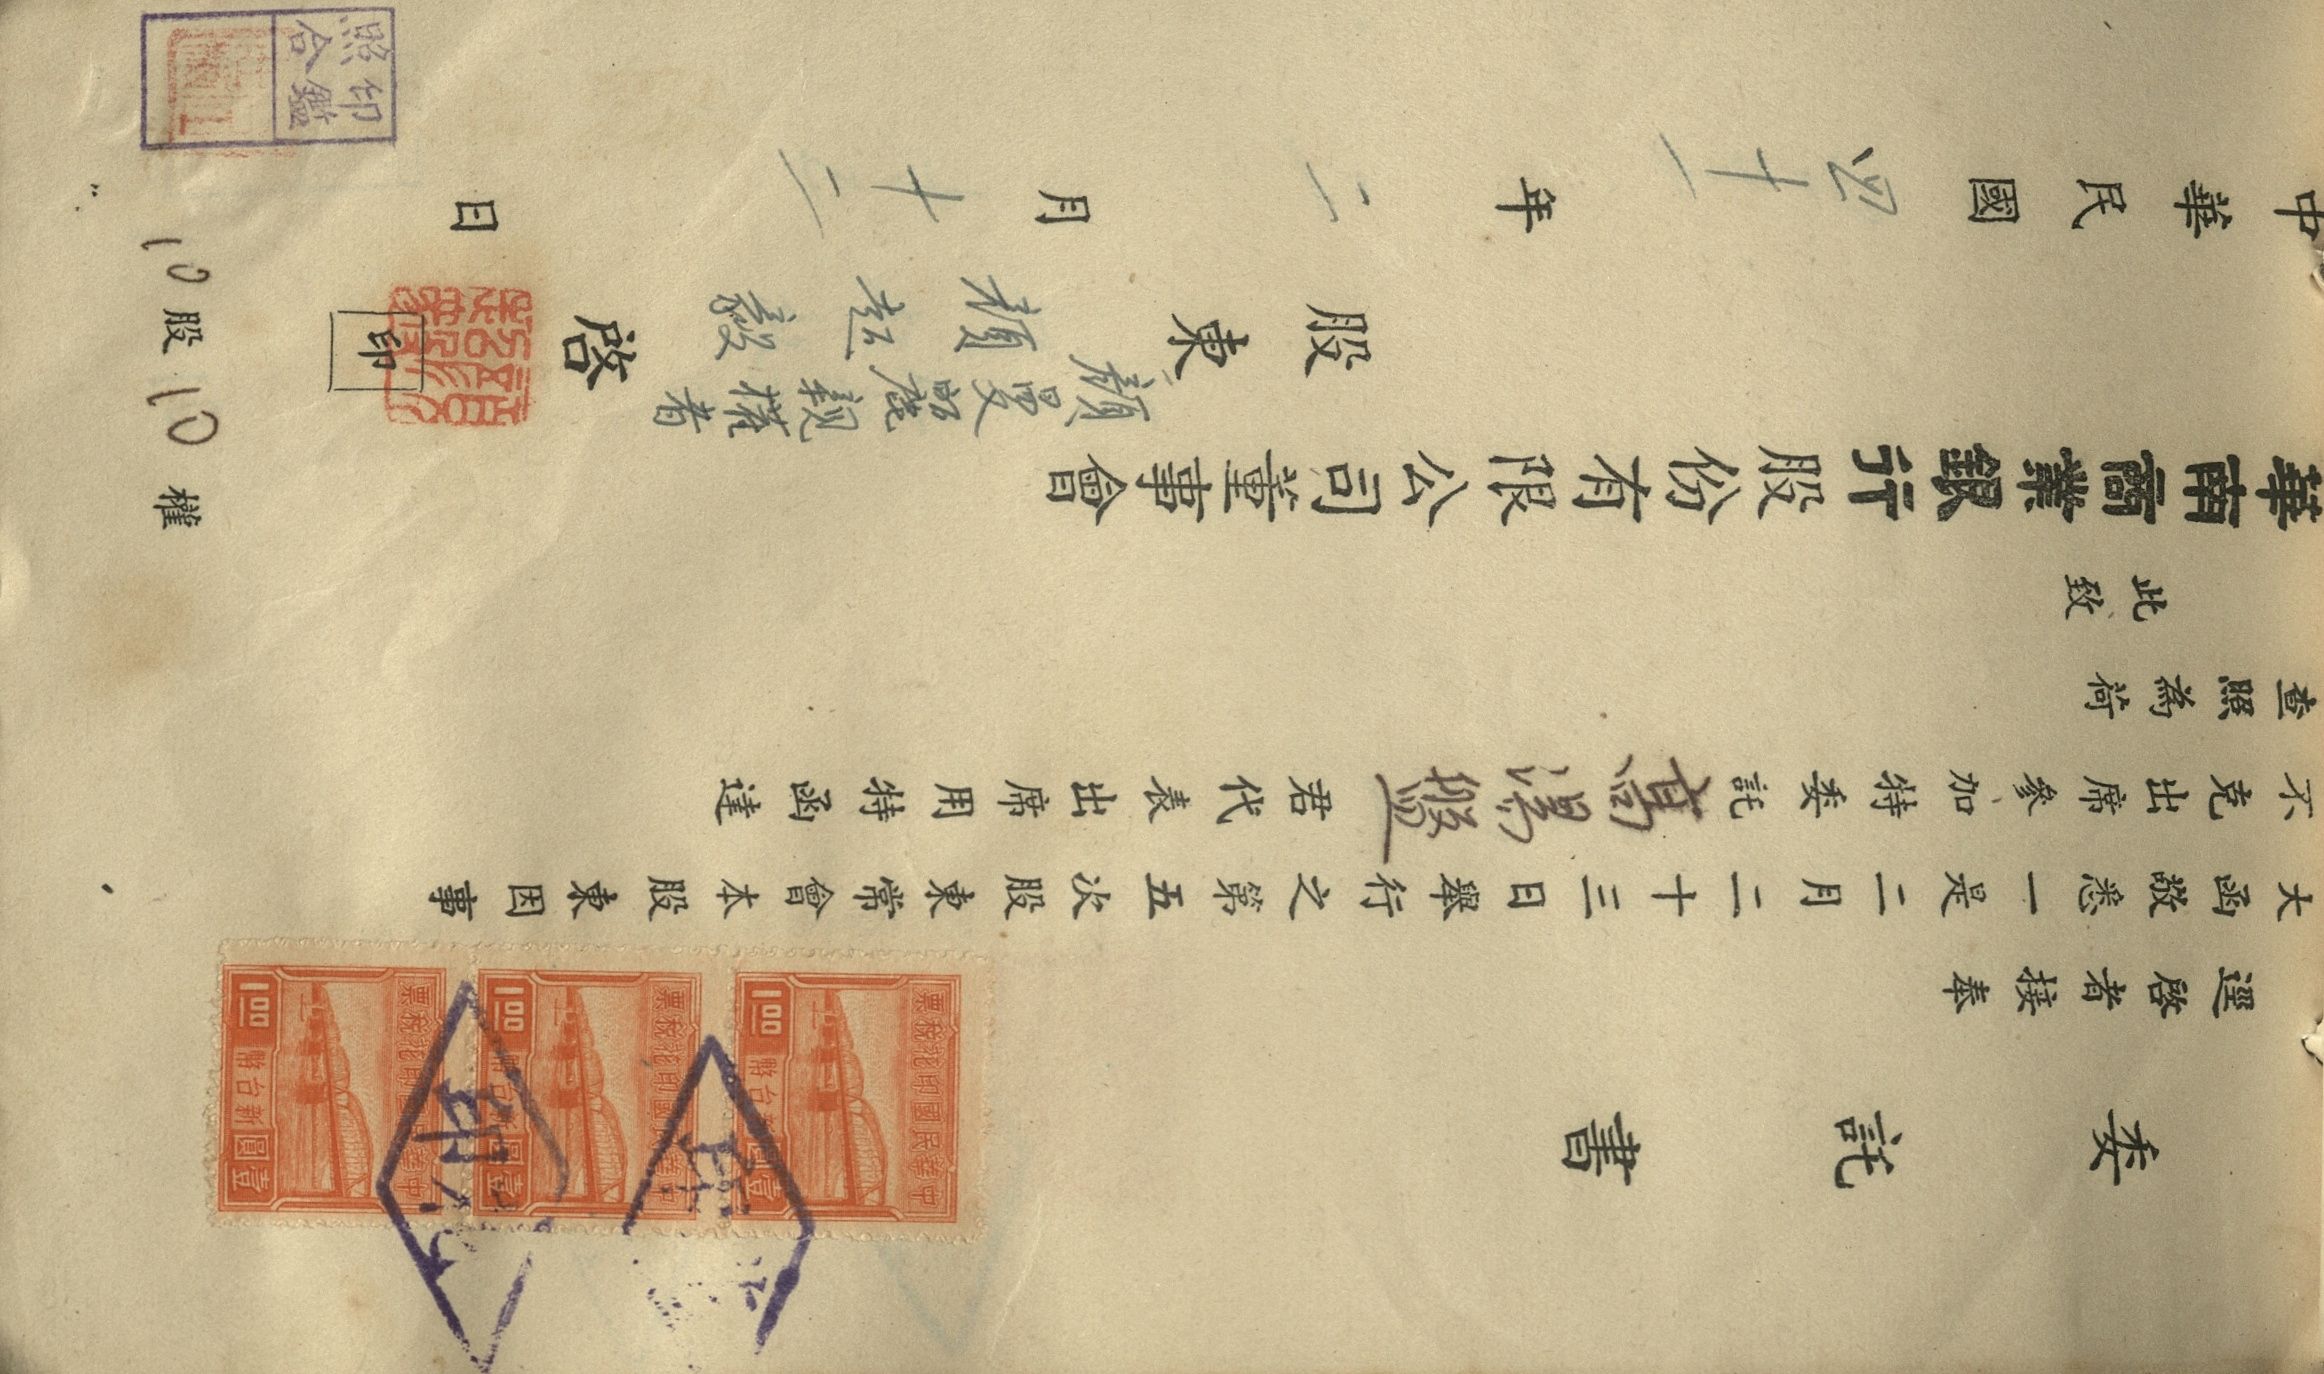 委託書
逕啓者接奉
大函敬悉一是二月二十三日舉行之第五次股東常會本股東因事
不克出席參加特委託高湯盤君代表出席用特函達
查照為荷
此致
華南商業銀行股份有限公司董事會
股東 顏超毅 啓 印
顏晏昭慶親權者
中華民國四十一年二月十二日
10股10權
印鑑
照合
中華民國印花稅票
壹圓新台幣
1.00
中華民國印花稅票
壹圓新台幣
1.00
中華民國印花稅票
壹圓新台幣
1.00